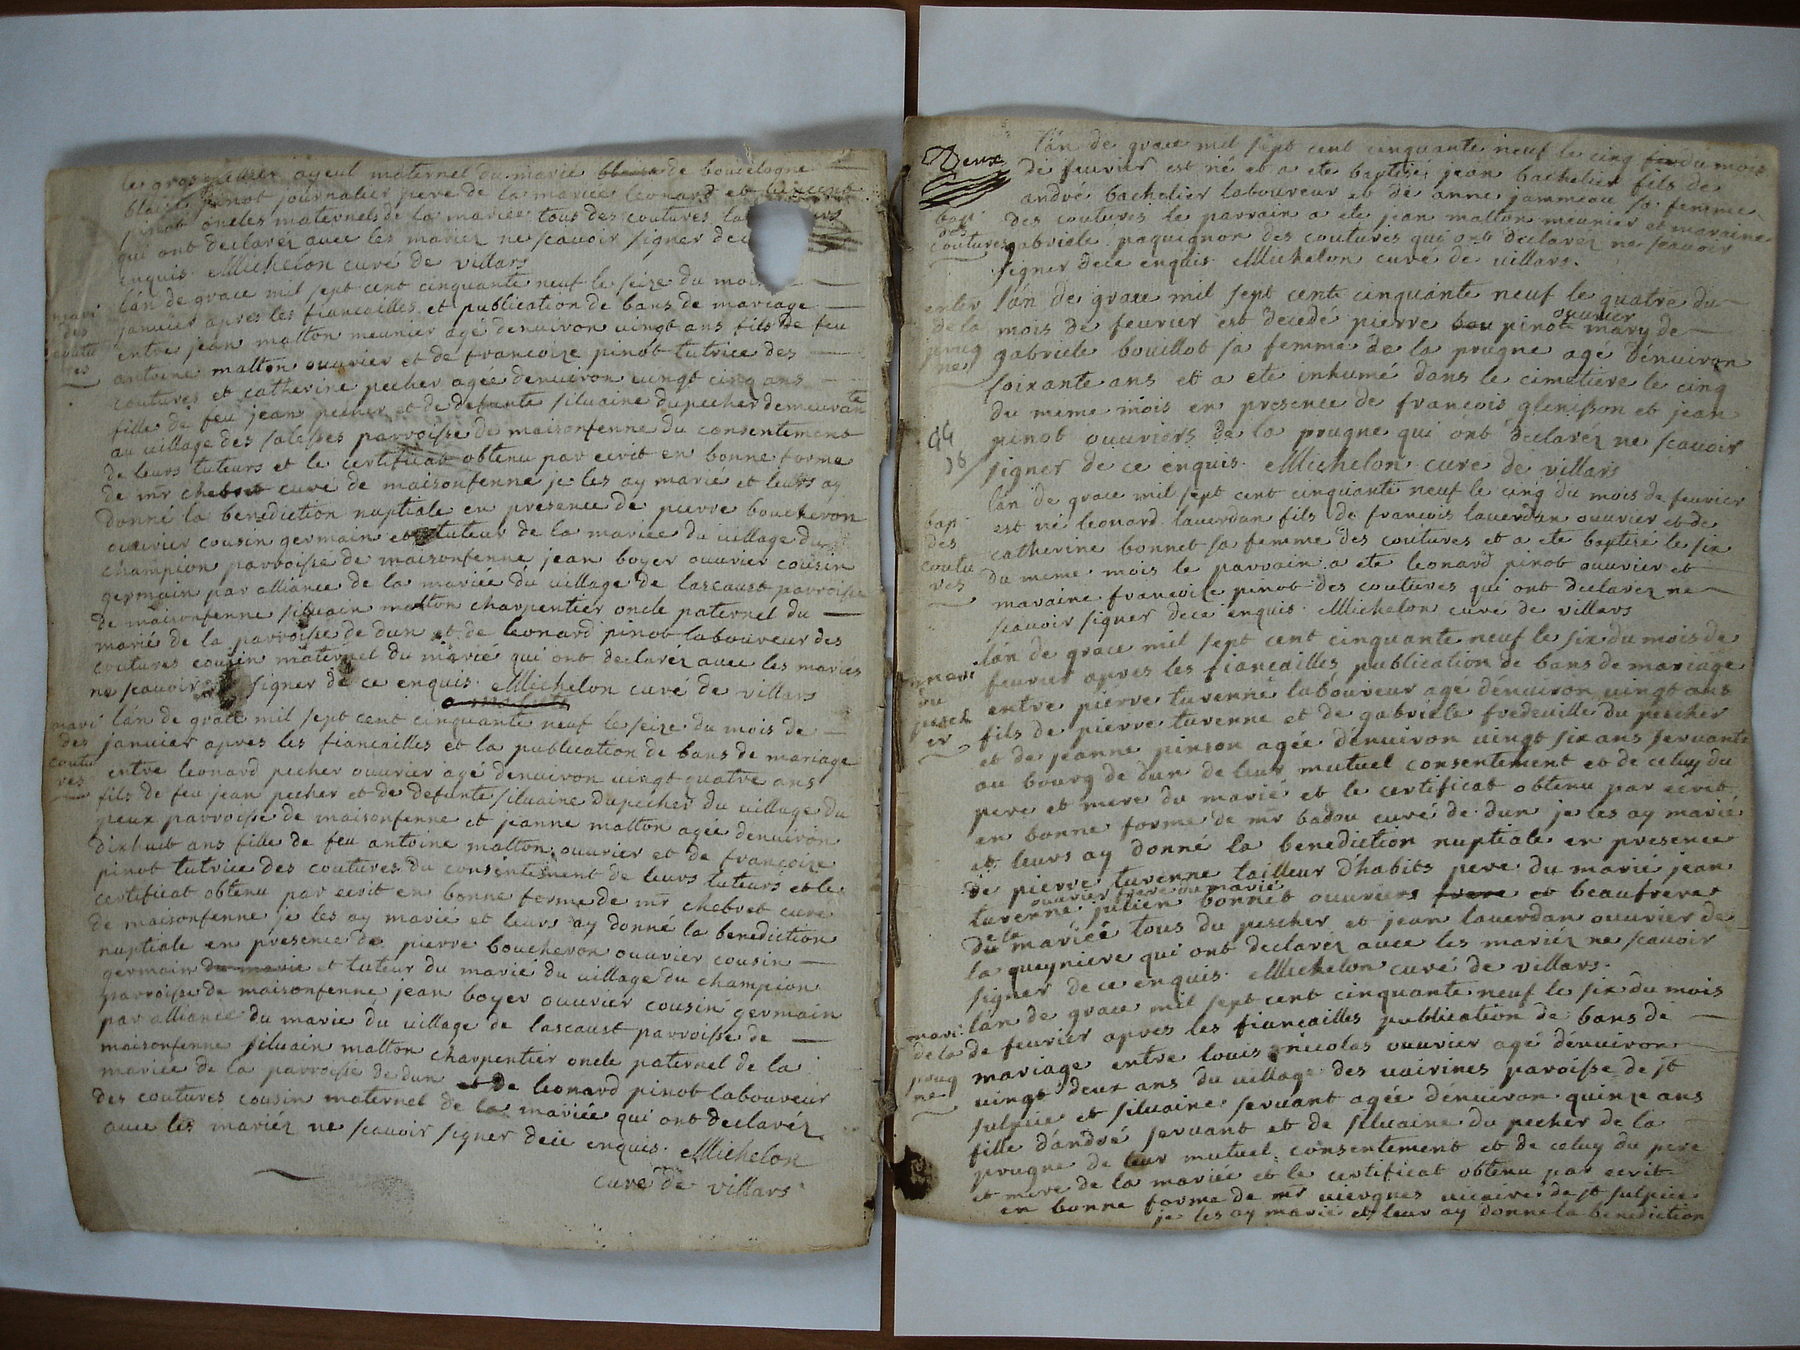 le gros ayeul maternel du marié de boucologne
blaise pinot journalier pere de la mariée leonard et vincent
pinot oncles maternels de la mariée tous des coutures
qui ont declaréz avec les mariéz ne scavoir signer de
enquis. Michelon curé de villars
mari
des
coutu
res
lán de grace mil sept cent cinquante neuf le seize du mois
janvier apres les fiancailles et publication de bans de mariage
entre jean malton meunier agé dénviron vingt ans fils de feu
antoine malton ouvrier et de francoize pinot tutrice des
coutures et catherine pecher agée dénviron vingt cinq ans
fille de feu jean pecher et de defunte siluaine dupecher demeurante
au village des salesses parroisse de maisonfenne du consentement
de leurs tuteurs et le certificat obtenu par ecrit en bonne forme
de mr chebrot curé de maisonfenne je les ay marié et leurs ay
donné la benediction nuptiale en presence de pierre boucheron
ouvrier cousin germain et tuteur de la mariée du village du
champion parroisse de maisonfenne, jean boyer ouvrier cousin
germain par alliance de la mariée du village de lascaust parroisse
de maisonfenne siluain malton charpentier oncle paternel du
marié de la parroisse de dun et de leonard pinot laboureur des
coutures cousin maternel du marié qui ont declaréz avec les mariés
ne scavoir signer de ce enquis. Michelon curé de villars
mari
des
coutu
res
lán de grace mil sept cent cinquante neuf le seize du mois de
janvier apres les fiancailles et la publication de bans de mariage
entre leonard pecher ouvrier agé dénviron vingt quatre ans
fils de feu jean pecher et de defunte siluaine dupecher du village du
peux parroisse de maisonfenne et jeanne malton agée dénviron
dixhuit ans fille de feu antoine malton ouvrier et de francoize
pinot tutrice des coutures du consentement de leurs tuteurs et le
certificat obtenu par ecrit en bonne forme de mr chebrot curé
de maisonfenne je les ay marié et leurs ay donné la benediction
nuptiale en presence de pierre boucheron ouvrier cousin
germain du marié et tuteur du marié du village du champion
parroisse de maisonfenne, jean boyer ouvrier cousin germain
par alliance du marié du village de lascaust parroisse de
maisonfenne siluain malton charpentier oncle paternel de la
mariée de la parroisse de dun et de leonard pinot laboureur
des coutures cousin maternel de la mariée qui ont declaréz
avec les mariéz ne scavoir signer dece enquis. Michelon
curé de villars
Deux
bap
des
coutures
lán de grace mil sept cent cinquante neuf le cinq du mois
de fevrier est né et a ete baptisé jean bachelier fils de
andré bachelier laboureur et de anne jammeau sa femme
des coutures le parrain a ete jean malton meunier et maraine
gabriele paquignon des coutures qui ont declaréz ne scavoir
signer dece enquis. Michelon curé de villars.
enter
de la
proug
ne
lán de grace mil sept cent cinquante neuf le quatre du
mois de fevrier est decedé pierre pinot ouvrier mary de
gabriele bouillot sa femme de la prugne agé dénviron
soixante ans et a ete inhumé dans le cimetiere le cinq
du meme mois en presence de francois glenisson et jean
pinot ouvriers de la prugne qui ont declaréz ne scavoir
signer de ce enquis. Michelon curé de villars
bap
des
coutu
res
lán de grace mil sept cent cinquante neuf le cinq du mois de fevrier
est né leonard laverdan fils de francois laverdan ouvrier et de
catherine bonnet sa femme des coutures et a ete baptisé le six
du meme mois le parrain a ete leonard pinot ouvrier et
maraine francoize pinot des coutures qui ont declarez ne
scavoir signer dece enquis. Michelon curé de villars
mari
du
pesch
er
lán de grace mil sept cent cinquante neuf le six du mois de
fevrier apres les fiancailles publication de bans de mariage
entre pierre turenne laboureur agé dénviron vingt ans
fils de pierre turenne et de gabriele fredeuille du pescher
et de jeanne pinson agée dénviron vingt six ans servante
au bourg de dun de leur mutuel consentement et de celuy du
pere et mere du marié et le certificat obtenu par ecrit
en bonne forme de mr badou curé de dun je les ay marié
et leurs ay donné la benediction nuptiale en presence
de pierre turenne tailleur d'habits pere du marié jean
turenne ouvrier frere du marié julien bonnet ouvriers frere et beaufrere
de la mariée tous du pescher et jean laverdan ouvrier de
la queyniere qui ont declaréz avec les mariéz ne scavoir
signer dece enquis. Michelon curé de villars.
mari
dela
proug
ne
lán de grace mil sept cent cinquante neuf le six du mois
de fevrier apres les fiancailles publication de bans de
mariage entre louis nicolas ouvrier agé dénviron
vingt deux ans du village des vairines paroisse de st
sulpice et siluaine servant agée dénviron quinze ans
fille d'andré servant et de siluaine du pecher de la
prougne de leur mutuel consentement et de celuy du pere
et mere de la mariée et le certificat obtenu par ecrit
en bonne forme de mr viergnes vicaire de st sulpice
je les ay marié et leur ay donné la benediction